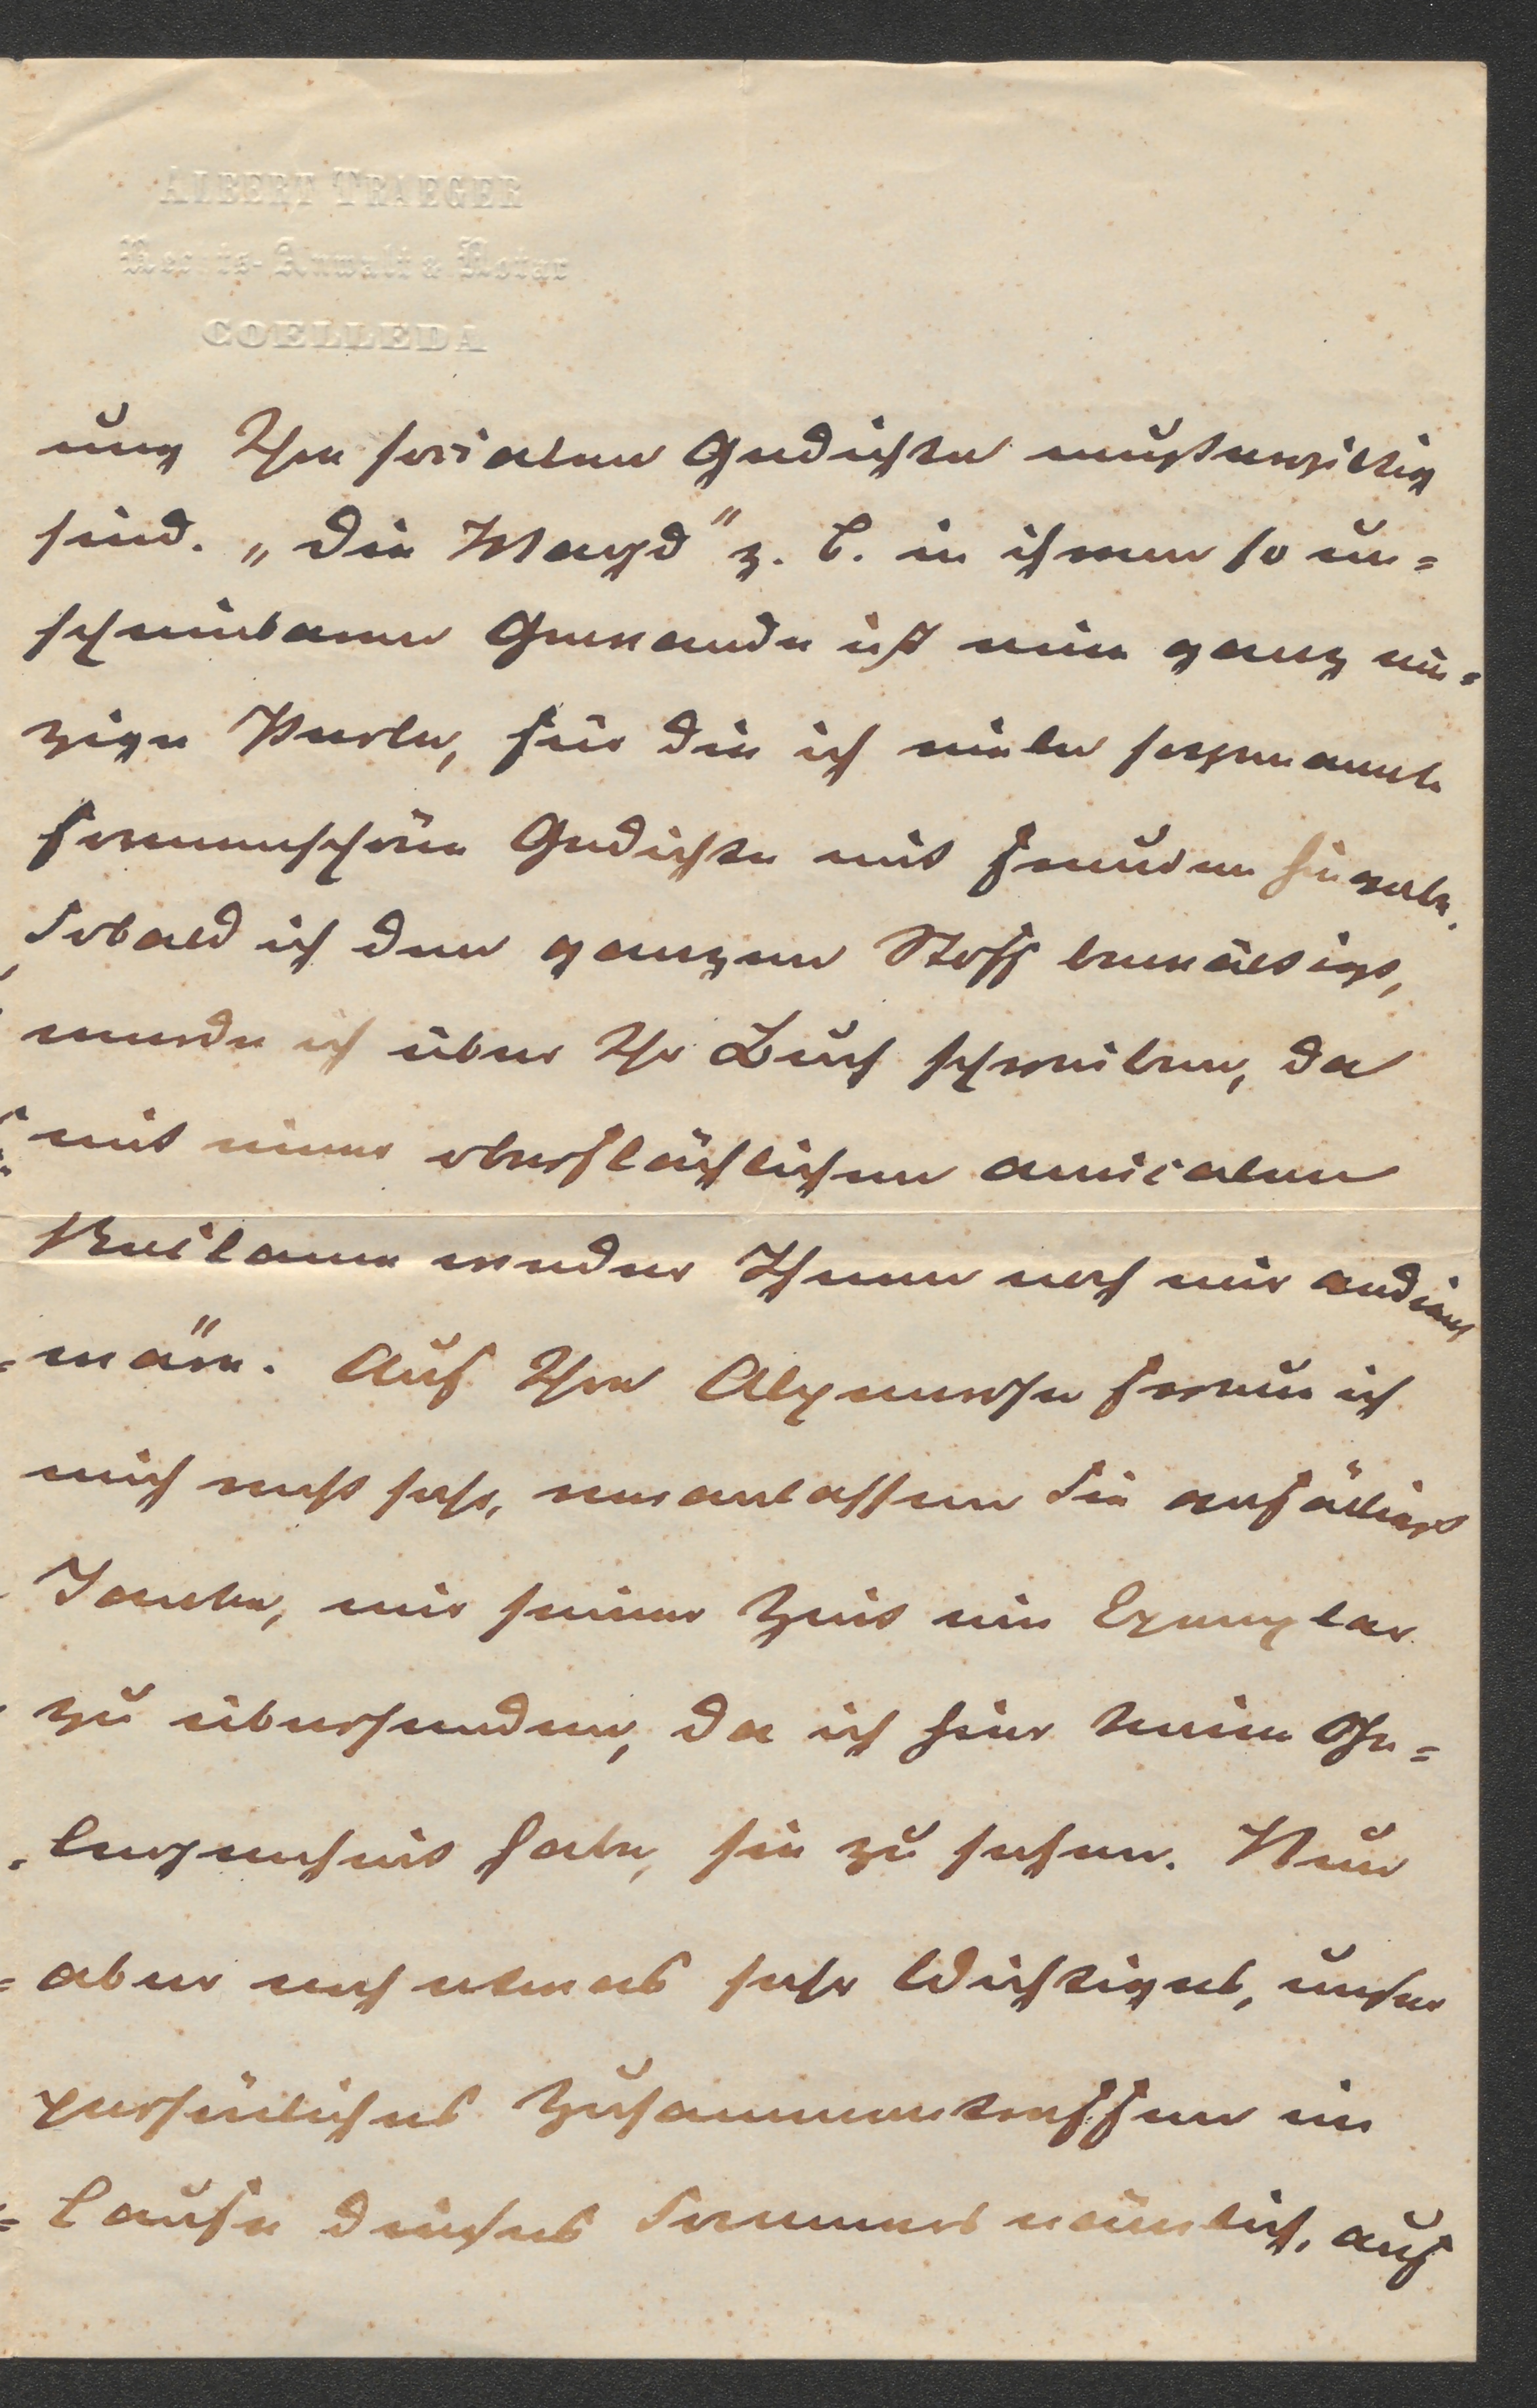 ALBERT TRAEGER
Rechts-Anwalt & Notar
COELLEDA
ung Ihre socialen Gedichte mustergiltig
sind. „Die Magd" z. B. in ihrem so un=
scheinbaren Gewande ist eine ganz ein=
zige Perle, für die ich viele sogenannte
formenschöne Gedichte mit Freuden hingebe.
Sobald ich den ganzen Stoff bewältigt,
werde ich über Ihr Buch schreiben, da
mit einer oberflächlichen amicalen
Reclame weder Ihnen noch mir gedient
wäre. Auf Ihre Alpenrose freue ich
mich recht sehr, veranlassen Sie gefälligst
Janke, mir seiner Zeit ein Exemplar
zu übersenden, da ich hier keine Ge=
legenheit habe, sie zu sehen. Nun
aber noch etwas sehr Wichtiges, unser
persönliches Zusammentreffen im
Laufe dieses Sommers nämlich, auf